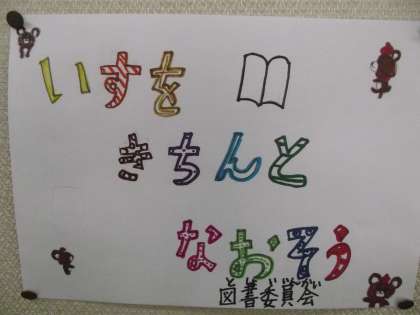 いすを
きちんと
なおそう
図書委員会